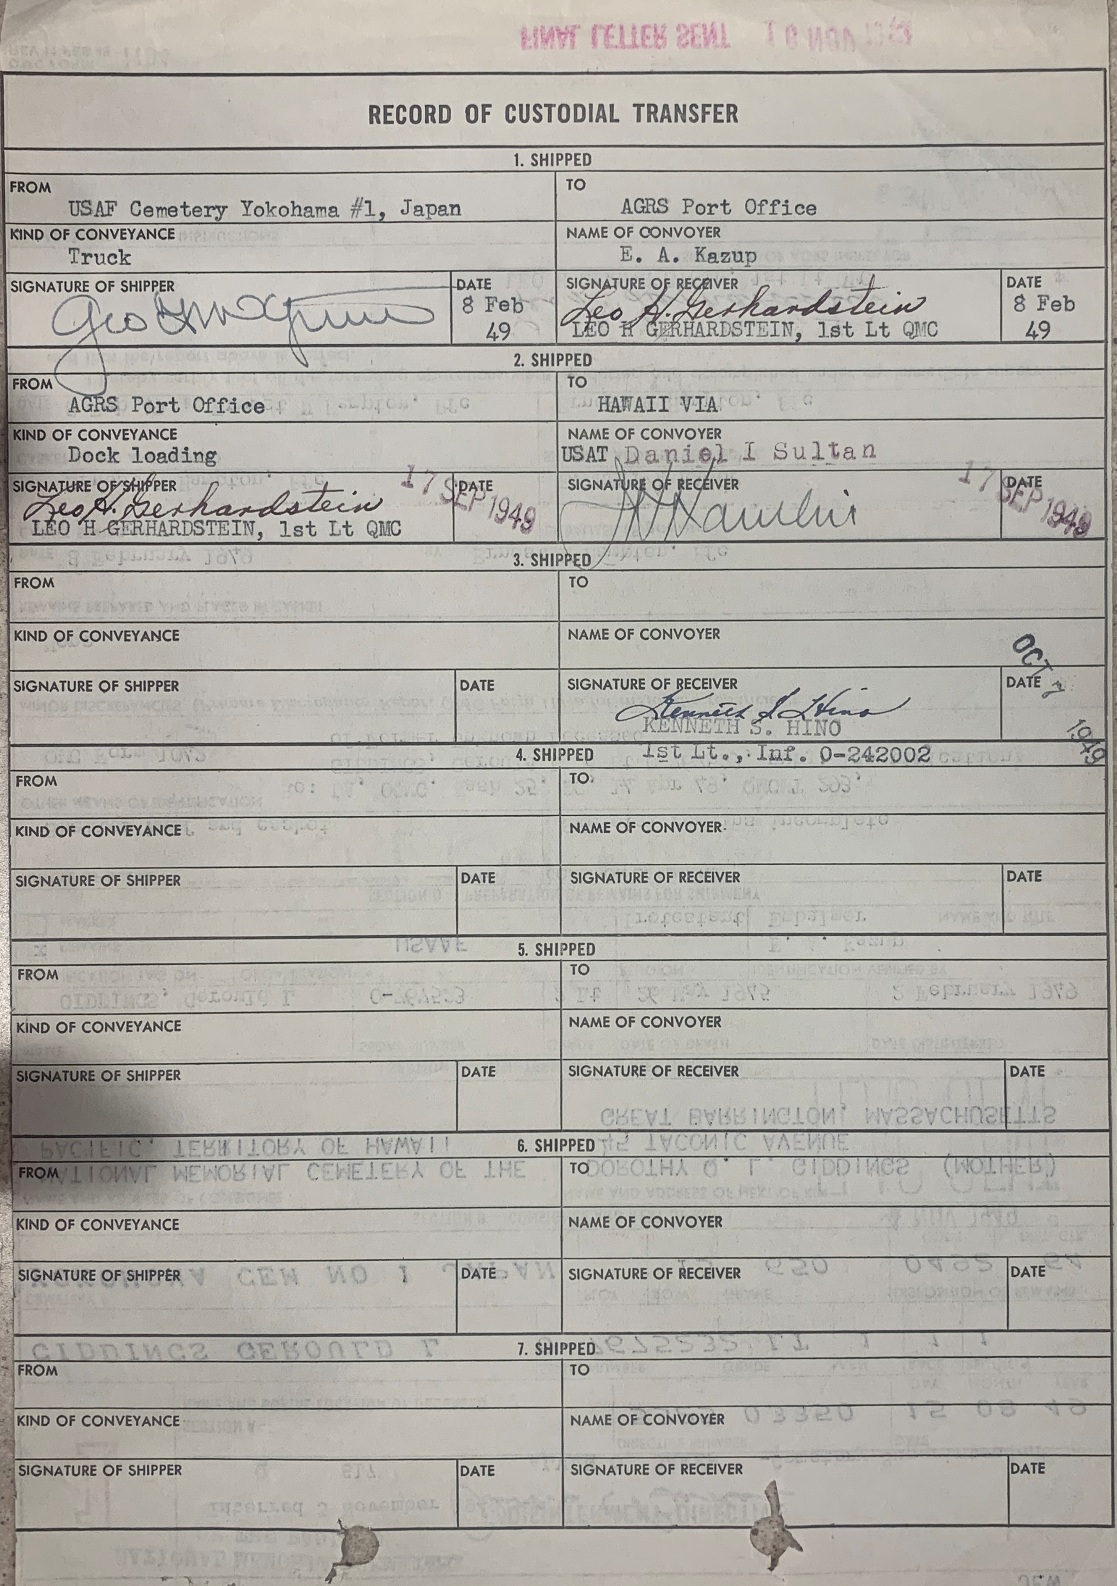 FINAL LETTER SENT
RECORD OF CUSTODIAL TRANSFER
1. SHIPPED
FROM
USAF Cemetery Yokohama #1, Japan
TO
AGRS Port Office
KIND OF CONVEYANCE
Truck
NAME OF CONVOYER
E. A. Kazup
SIGNATURE OF SHIPPER
DATE
8 Feb
49
SIGNATURE OF RECEIVER
Leo H. Gerhardstein
LEO H GERHARDSTEIN, 1st Lt QMC
DATE
8 Feb
49
2. SHIPPED
FROM
AGRS Port Office
TO
HAWAII VIA
KIND OF CONVEYANCE
Dock loading
NAME OF CONVOYER
USAT Daniel I Sultan
SIGNATURE OF SHIPPER
Leo H. Gerhardstein
LEO H GERHARDSTEIN, 1st Lt QMC
DATE
17 SEP 1949
SIGNATURE OF RECEIVER
DATE
17 SEP 1949
3. SHIPPED
FROM
TO
KIND OF CONVEYANCE
NAME OF CONVOYER
SIGNATURE OF SHIPPER
DATE
SIGNATURE OF RECEIVER
Kenneth S. Hino
KENNETH S. HINO
1st Lt., Inf. O-242002
DATE
OCT
1949
4. SHIPPED
FROM
TO
KIND OF CONVEYANCE
NAME OF CONVOYER
SIGNATURE OF SHIPPER
DATE
SIGNATURE OF RECEIVER
DATE
5. SHIPPED
FROM
TO
KIND OF CONVEYANCE
NAME OF CONVOYER
SIGNATURE OF SHIPPER
DATE
SIGNATURE OF RECEIVER
DATE
6. SHIPPED
FROM
TO
KIND OF CONVEYANCE
NAME OF CONVOYER
SIGNATURE OF SHIPPER
DATE
SIGNATURE OF RECEIVER
DATE
7. SHIPPED
FROM
TO
KIND OF CONVEYANCE
NAME OF CONVOYER
SIGNATURE OF SHIPPER
DATE
SIGNATURE OF RECEIVER
DATE